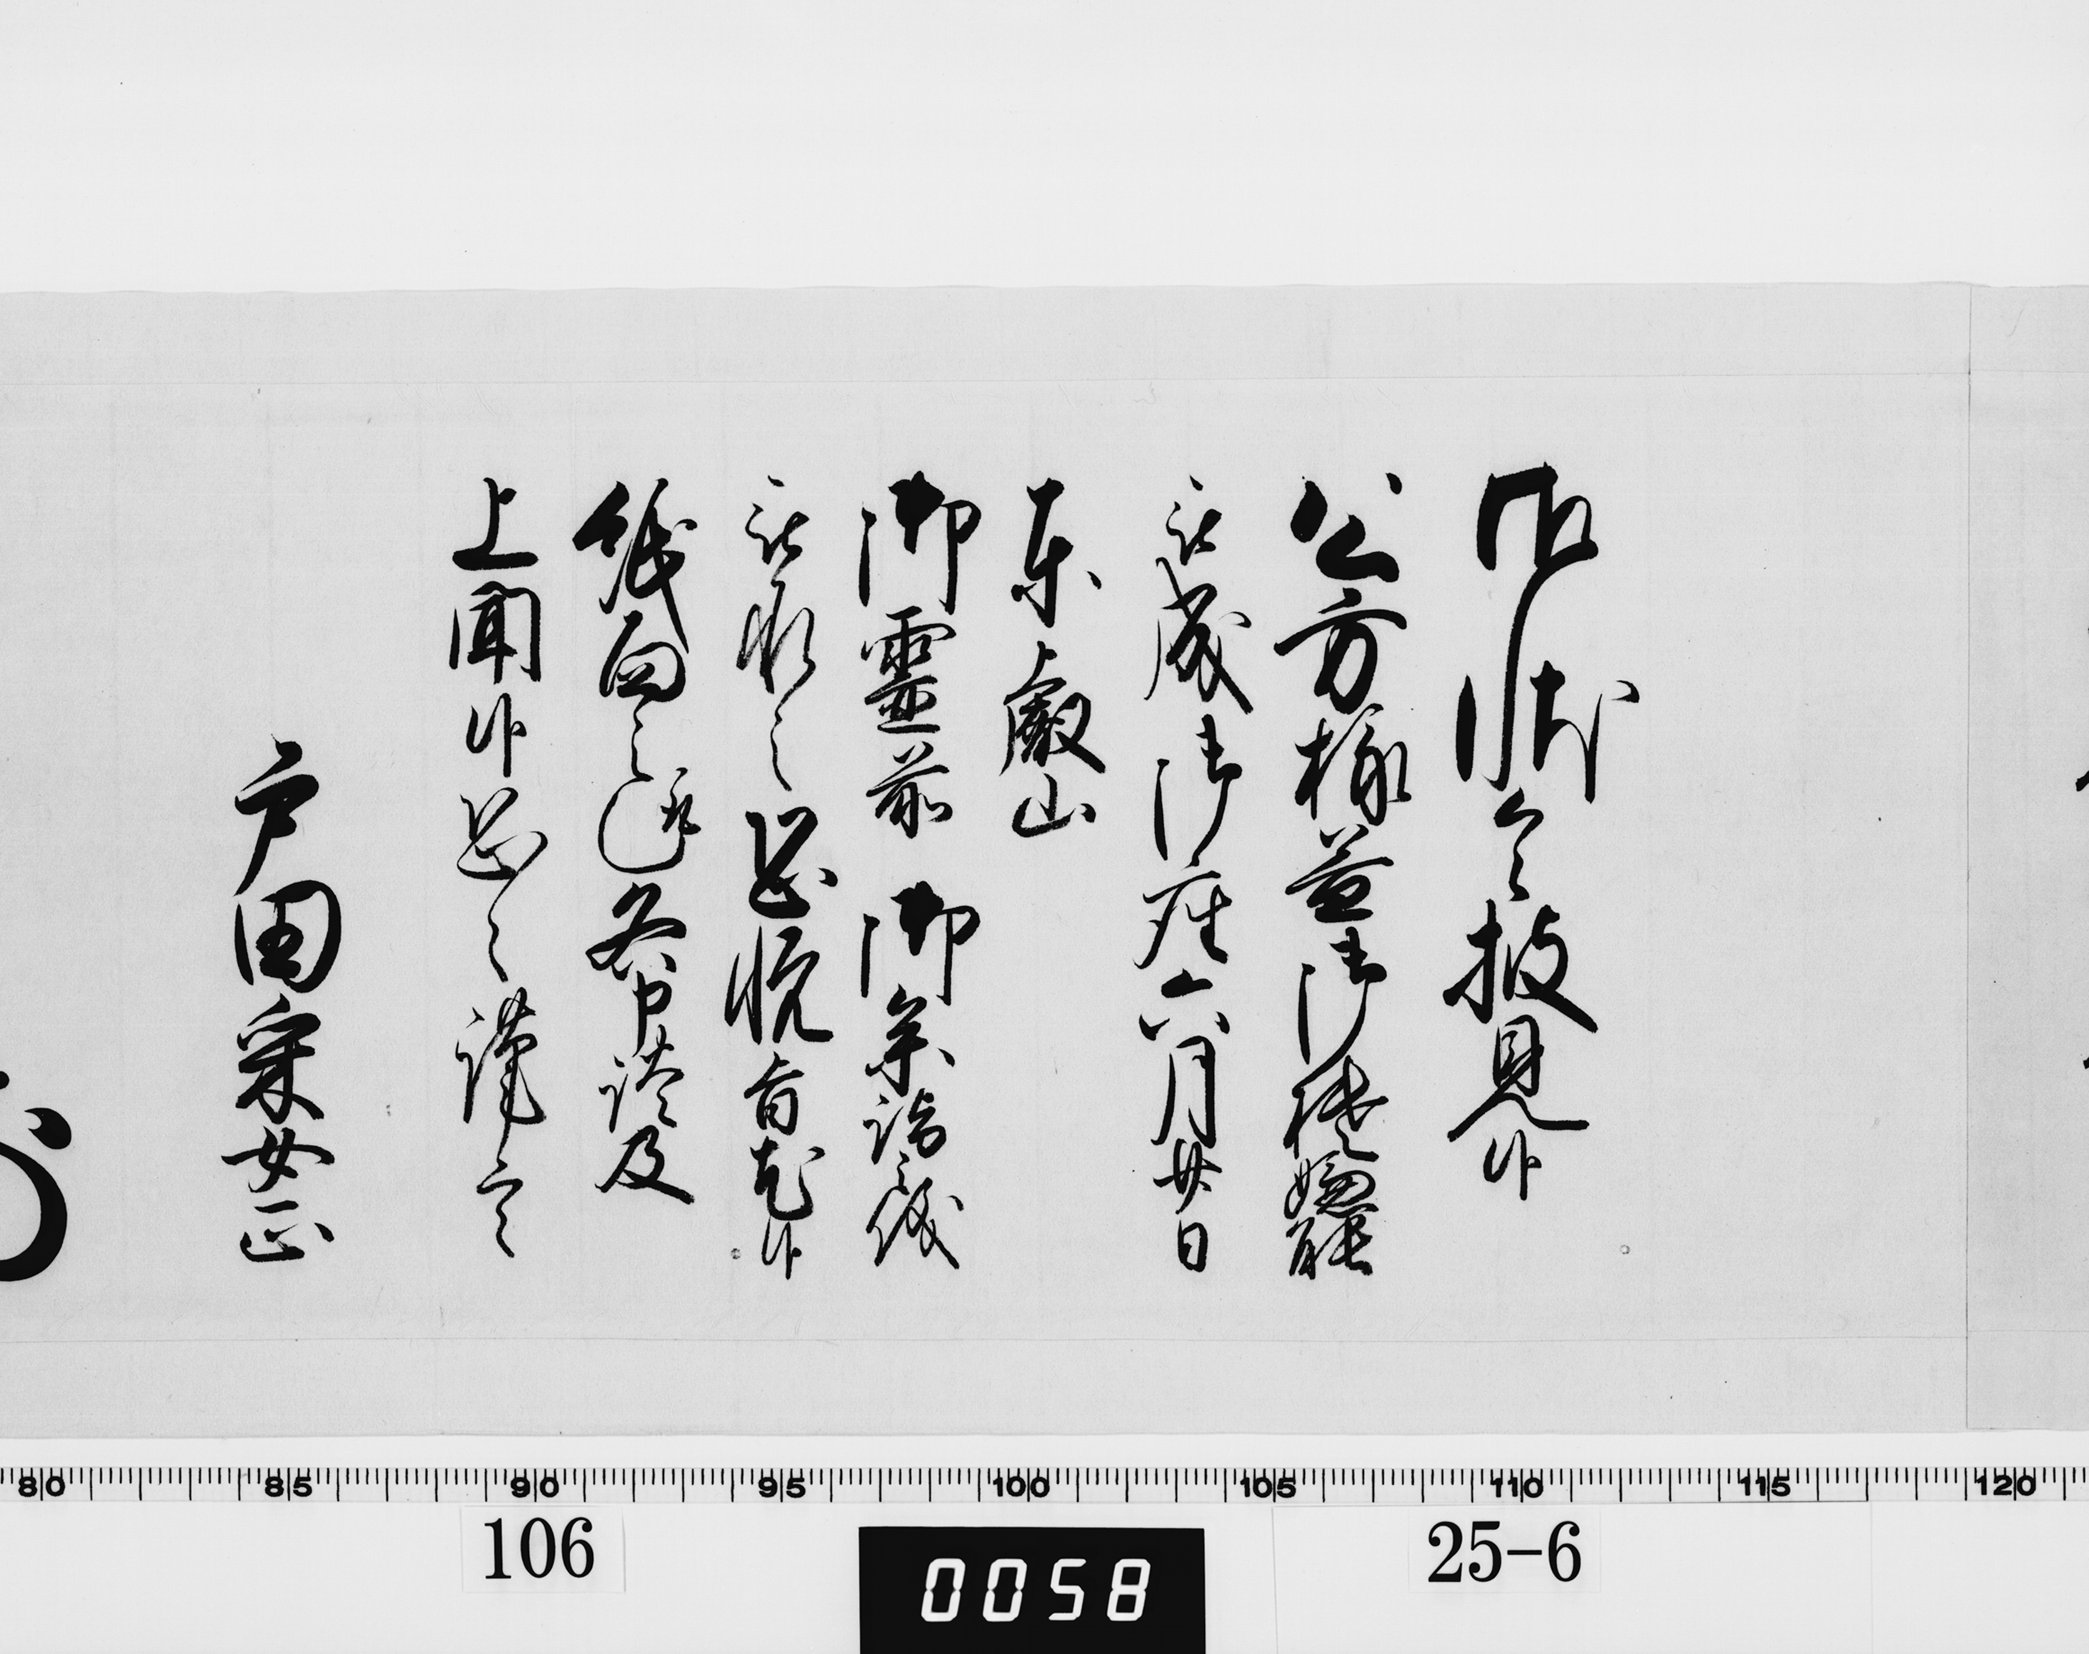 御状令披見候
公方様益御機嫌能
被成御座六月廿日
東叡山
御霊前 御参詣之儀
被承之恐悦旨尤候
紙面之趣各申談及
上聞候恐々謹言
戸田采女正
80 85 90 95 100 105 110 115 120
106
0058
25-6